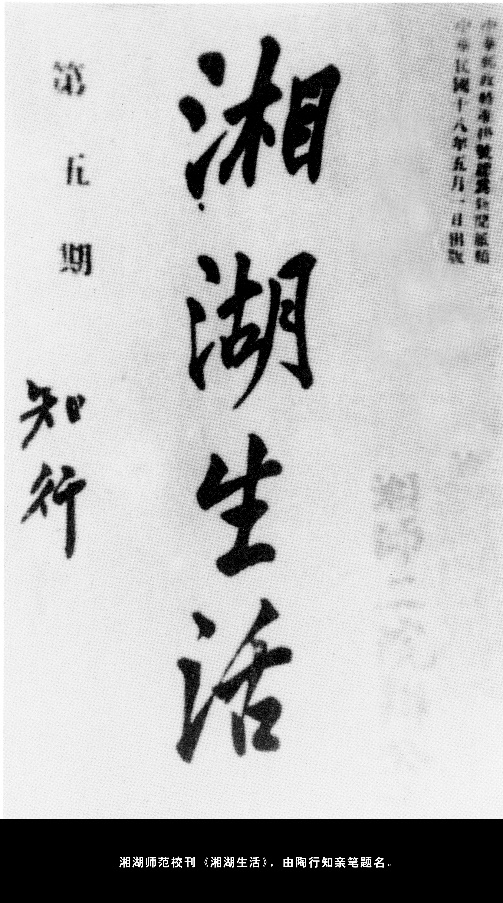 中華民國十八年五月一日出版
湘湖生活
第五期
知行
湘湖师范校刊《湘湖生活》，由陶行知亲笔题名。